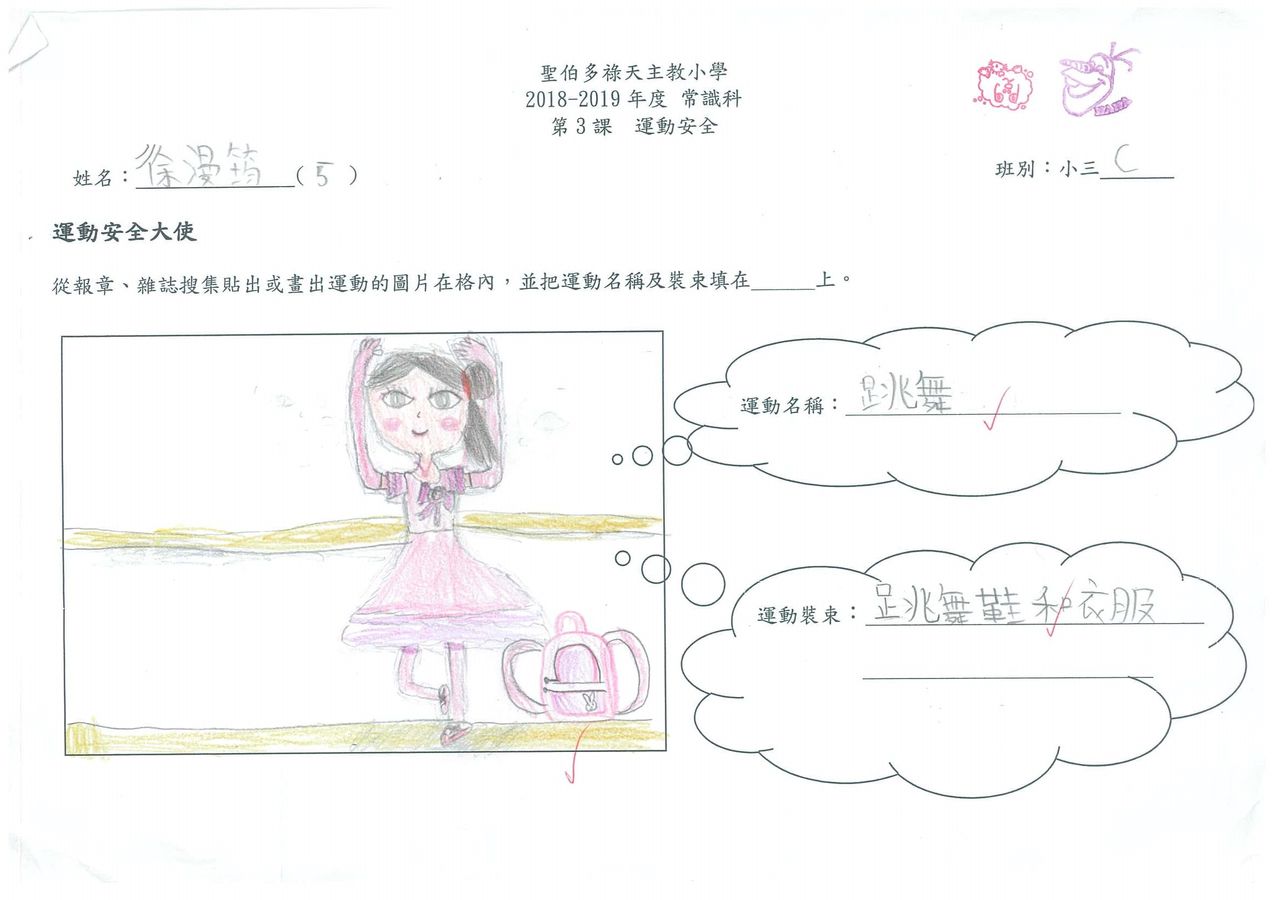 聖伯多祿天主教小學
2018-2019 年度 常識科
第 3 課 運動安全
姓名：徐漫筠（5）
班別：小三C
運動安全大使
從報章、雜誌搜集貼出或畫出運動的圖片在格內，並把運動名稱及裝束填在______上。
運動名稱：跳舞
運動裝束：跳舞鞋和衣服